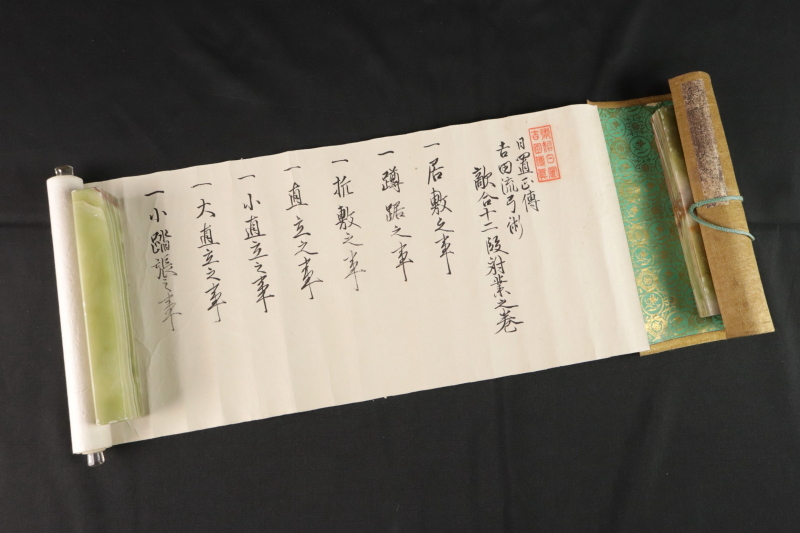 日置正傳
吉田流弓術
敵合十二段射業之巻
一居敷之事
一蹲踞之事
一折敷之事
一直立之事
一小直立之事
一大直立之事
一小踏張之事